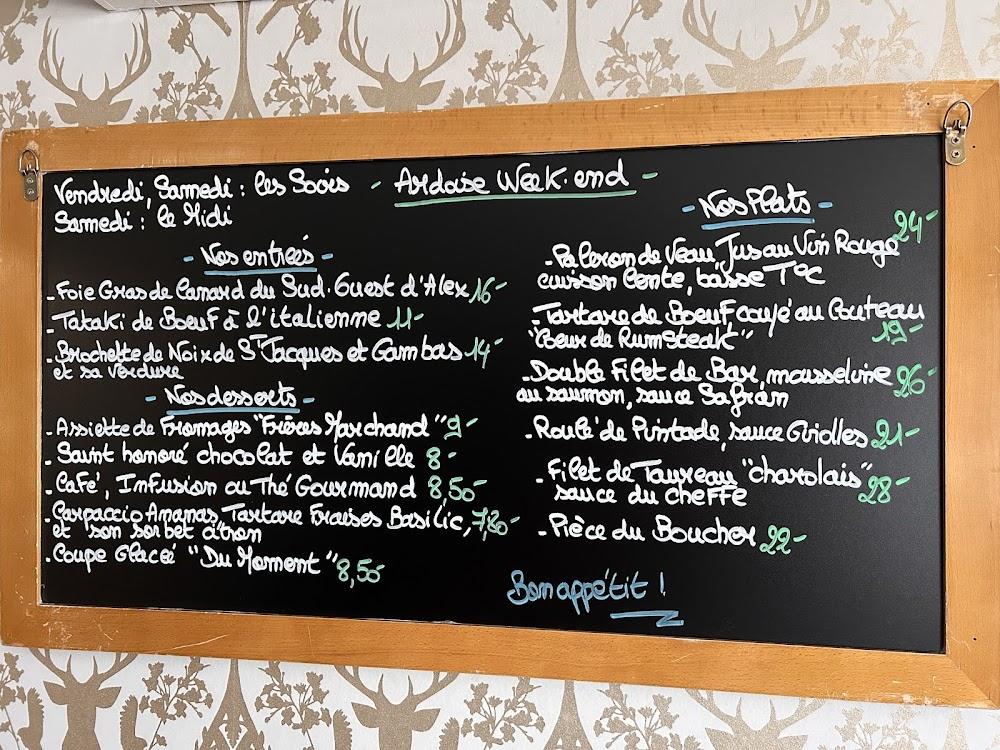 Vendredi, Samedi : les Soirs
Samedi : le Midi
- Ardoise Week.end -
- Nos entrées -
- Foie Gras de Canard du Sud.Ouest d'Alex 16-
- Tataki de Boeuf à l'italienne 11-
- Brochette de Noix de St Jacques et Gambas 14-
et sa verdure
- Nos desserts -
- Assiette de Fromages "Frères Marchand" 9-
- Saint honoré chocolat et Vanille 8-
- Café, Infusion ou Thé Gourmand 8,50-
- Carpaccio Ananas, Tartare Fraises Basilic, 7,80-
et son sorbet citron
- Coupe Glacée "Du Moment" 8,50
- Nos Plats -
24-
- Paleron de Veau, Jus au Vin Rouge
cuisson lente, basse T°C
- Tartare de Boeuf coupé au Couteau
"Coeur de Rumsteak" 19-
- Double Filet de Bar, mousseline 26-
au saumon, sauce Safran
- Roulé de Pintade, sauce Griolles 21-
- Filet de Taureau "charolais"
sauce du cheffe 28-
- Pièce du Boucher 22-
Bon appétit !